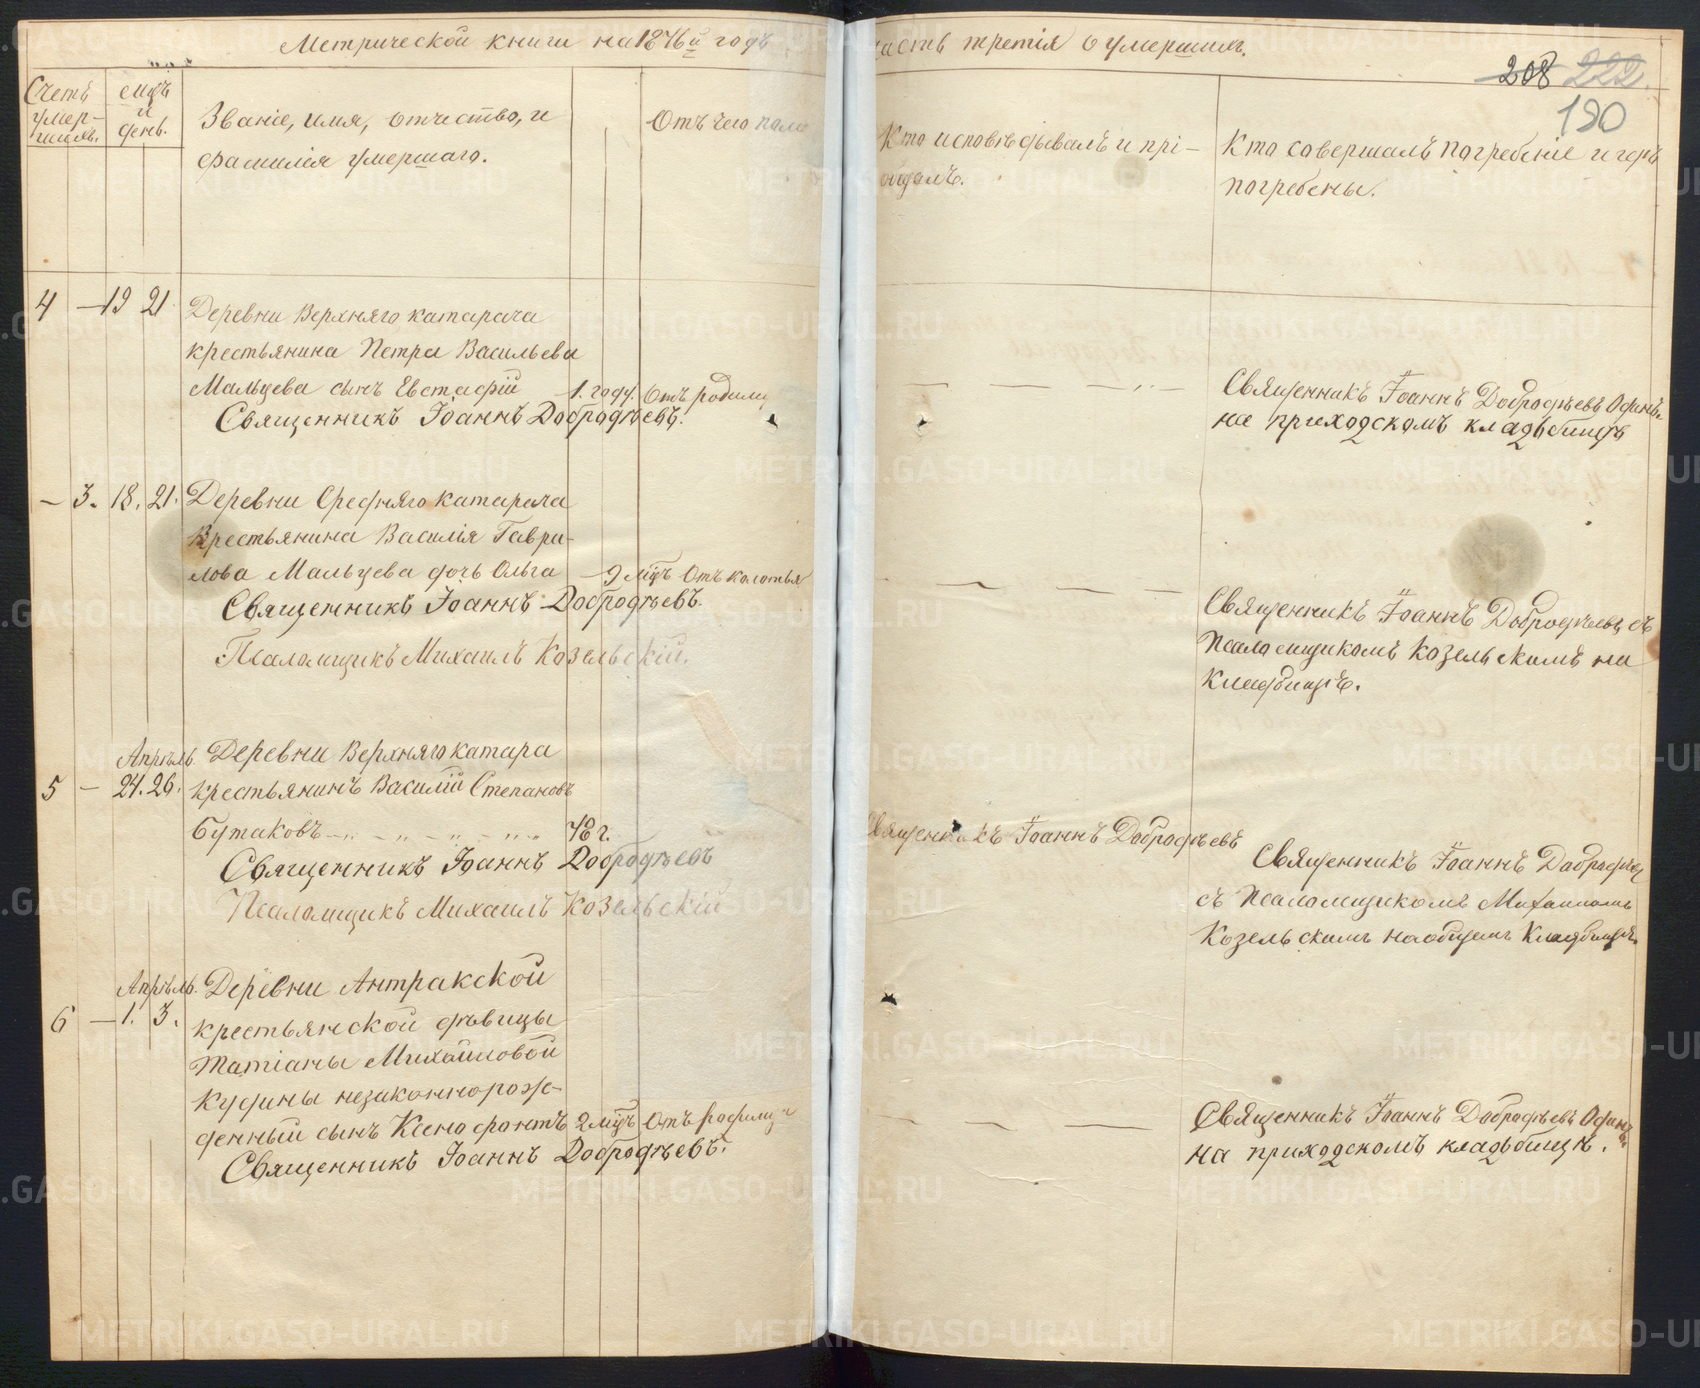 Метрической книги на 1876й годъ
часть третія о умершихъ.
208 222
190
Счетъ умер-шихъ.
Мцъ и день.
Званіе, имя, отчество, и
фамилія умершаго.
Отъ чего поме
Кто исповѣдывалъ и прі-
общалъ.
Кто совершалъ погребеніе и гдѣ
погребены.
4 — 19 21 Деревни Верхняго катарача
крестьянина Петра Васильева
Мальцева сынъ Евстафій 1. годъ. Отъ родимц
Священникъ Іоаннъ Добродѣевъ.
Священникъ Іоаннъ Добродѣевъ Одинъ.
на приходскомъ кладьбищѣ
— 3. 18. 21. Деревни Средняго катарача
Крестьянина Василія Гаври-
лова Мальцева дочь Ольга — 9 мцъ Отъ колотья
Священникъ Іоаннъ Добродѣевъ.
Псаломщикъ Михаилъ Козельскій.
Священникъ Іоаннъ Добродѣевъ съ
Псаломщикомъ Козельскимъ на
Кладбищѣ.
Апрѣль. Деревни Верхняго катара
5 — 24. 26. крестьянинъ Василій Степановъ
Бутаковъ 78 г.
Священникъ Іоаннъ Добродѣевъ
Псаломщикъ Михаилъ Козельскій
Священникъ Іоаннъ Добродѣевъ
Священникъ Іоаннъ Добродѣев
съ Псаломщикомъ Михаиломъ
Козельскимъ на общемъ Кладбищѣ.
Апрѣль. Деревни Антракской
6 — 1. 3. крестьянской дѣвицы
Татіаны Михайловой
Кудины незаконнорож-
денный сынъ Ксенофонтъ 2 мцъ Отъ родимц
Священникъ Іоаннъ Добродѣевъ.
Священникъ Іоаннъ Добродѣевъ Одинъ.
на приходскомъ кладьбищѣ.
METRIKI.GASO-URAL.RU